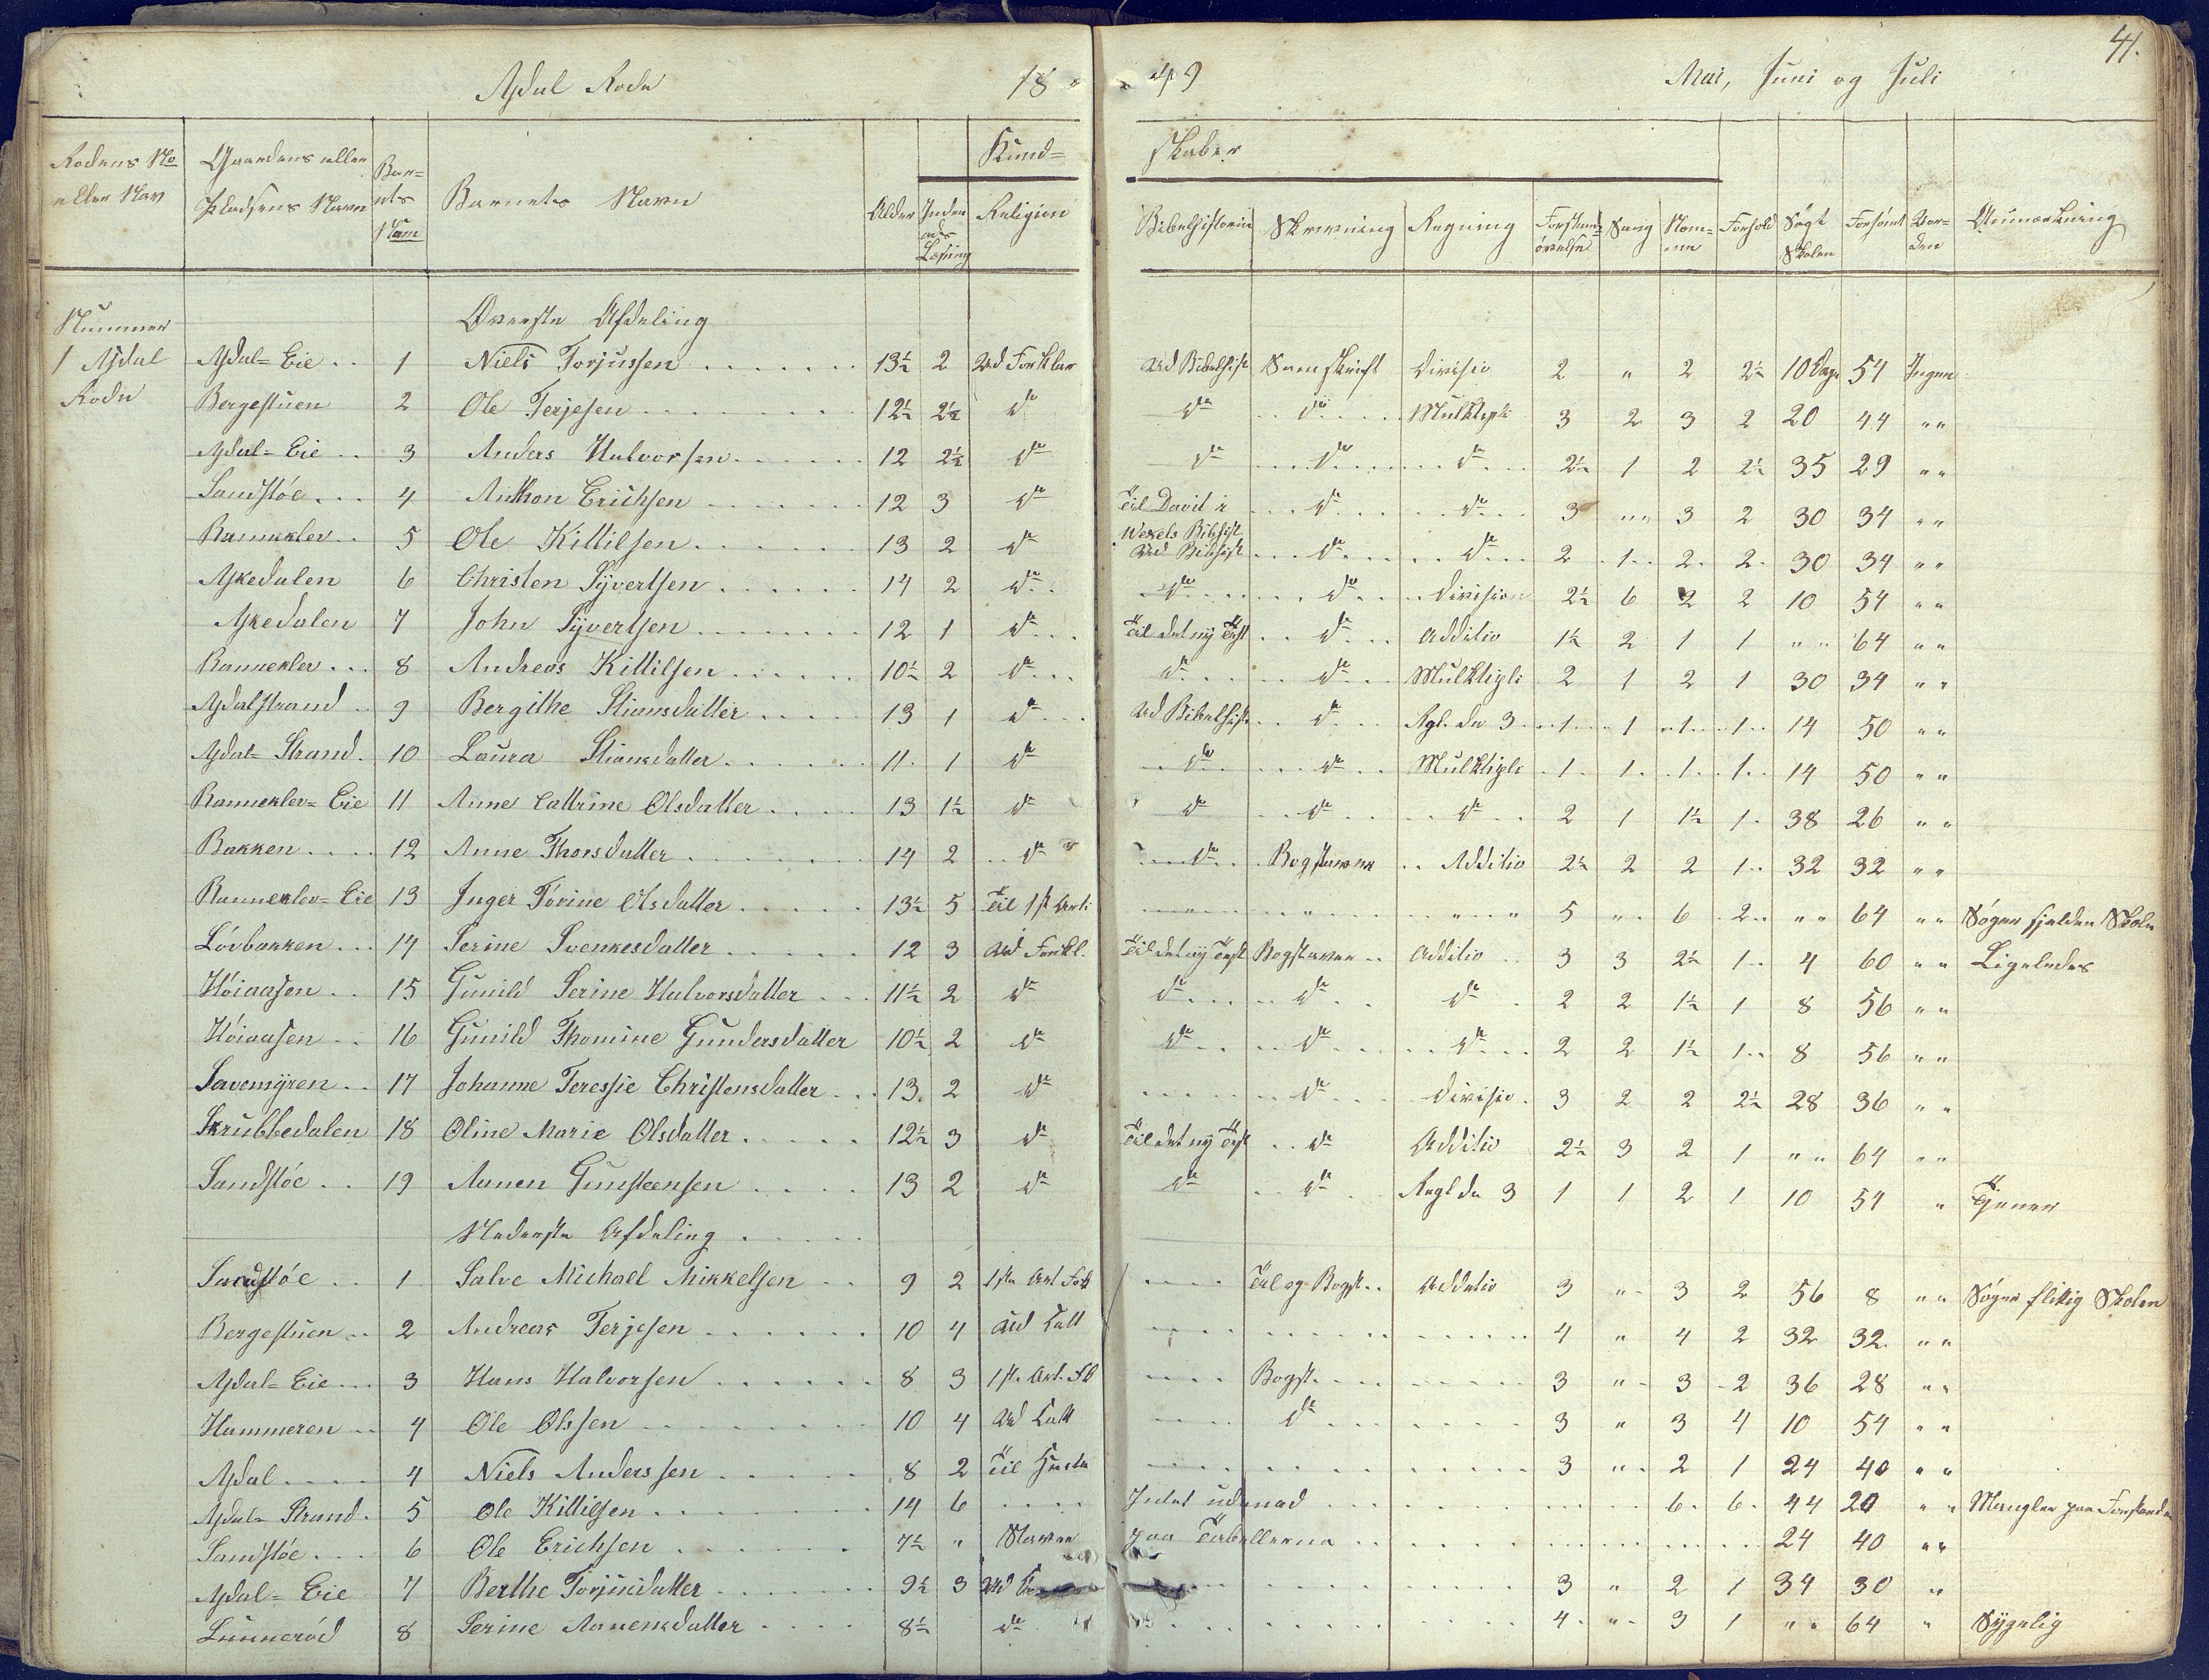 41.
Asdal Rode 1849 Mai, Juni og Juli
Rodens No eller Nav | Gaardens eller Pladsens Navn | Barnets Num | Barnets Navn | Alder | Inden ads Læsning | Kundskaber | Religion | Bibelhistorie | Skrivning | Regning | Forstands øvelse | Sang | Nemme | Forhold | Søgt Skolen | Forsømt | Anmærkning
Nummer 1 Asdal Rode
Øverste Afdeling
Asdal-Eie .. 1 Niels Torjussen 13½ 2 Ud Forklar Ud Bibelhist Samskrift Divisio 2 " 2 2½ 10 Dage 54 Ingen
Bergestuen 2 Ole Terjesen 12½ 2½ do do do Multipli 3 2 3 2 20 44 " "
Asdal-Eie .. 3 Anders Halvorsen 12 2½ do do do do 2½ 1 2 2½ 35 29 " "
Sandstøe ... 4 Anthon Erichsen 12 3 do Til David i Wexels Bibhist do do 3 " " 3 2 30 34 " "
Ranneklev .. 5 Ole Kittilsen 13 2 do Ud Bibhist do do 2 1 2 2 30 34 " "
Askedalen 6 Christen Syvertsen 14 2 do do do Division 2½ 6 2 2 10 54 " "
Askedalen 7 John Syvertsen 12 1 do Til det ny Test do Additio 1½ 2 1 1 " " 64 " "
Rannekler ... 8 Andreas Kittilsen 10½ 2 do do do Multipli 2 1 2 1 30 34 " "
Asdalstrand .. 9 Bergithe Stiansdatter 13 1 do Ud Bibelhist do Rgl. de 3 1 1 1 1 14 50 " "
Asdal-Strand . 10 Laura Stiansdatter 11 1 do do do Multipli 1 1 1 1 14 50 " "
Rannekler-Eie 11 Anne Cattrine Olsdatter 13 1½ do do do do 2 1 1½ 1 38 26 " "
Bakken .... 12 Anne Thorsdatter 14 2 do do Bogstaver Additio 2½ 2 2 1 32 32 " "
Rannekler-Eie 13 Inger Tórine Olsdatter 13½ 5 Til 1st Arti " " " 5 " 6 2 " " 64 " " Søger sjelden Skole
Lóvbakken ... 14 Serine Svenkesdatter 12 3 Ud Forkl. Til det ny Test Bogstaver Additio 3 3 2½ 1 4 60 " " Ligeledes
Hóiaasen .. 15 Gunild Serine Halvorsdatter 11½ 2 do do do do 2 2 1½ 1 8 56 " "
Hóiaasen .. 16 Gunild Thomine Gundersdatter 10½ 2 do do do do 2 2 1½ 1 8 56 " "
Savemyren .. 17 Johanne Teressie Christensdatter 13 2 do do Divisio 3 2 2 2½ 28 36 " "
Skrubbedalen 18 Oline Marie Olsdatter 12½ 3 do Til det ny Test do Additio 2½ 3 2 1 " " 64 " "
Sandstóe .. 19 Aanen Gunsteensen 13 2 do do do Regl de 3 1 1 2 1 10 54 " Tjener
Nederste Afdeling
Sandstóe .. 1 Salve Michael Mikkelsen 9 2 1ste Art Fork Tal og Bogst Additio 3 " 3 2 56 8 " " Søger flittig Skolen
Bergestuen .. 2 Andreas Terjesen 10 4 Ud Catt 4 " 4 2 32 32 " "
Asdal-Eie ... 3 Hans Halvorsen 8 3 1st. Art. Bogst. 3 " 3 2 36 28 " "
Hammeren .. 4 Ole Olssen 10 4 Ud Catt do 3 " 3 4 10 54 " "
Asdal .... 4 Niels Anderssen 8 2 Til 3 " 2 1 24 40 " "
Asdal-Strand . 5 Ole Kittilsen 14 6 Intet udenad 6 6 44 20 " " Mangler paa Forstand
Sandstóe ... 6 Ole Erichsen 7½ " Staver paa Tabellerne 24 40 " "
Asdal-Eie 7 Berthe Torjusdatter 9½ 3 Ud 3 " 2 1 34 30 "
Lunneród 8 Serine Aanensdatter 8½ do 4 " 3 1 " " 64 " Sygelig